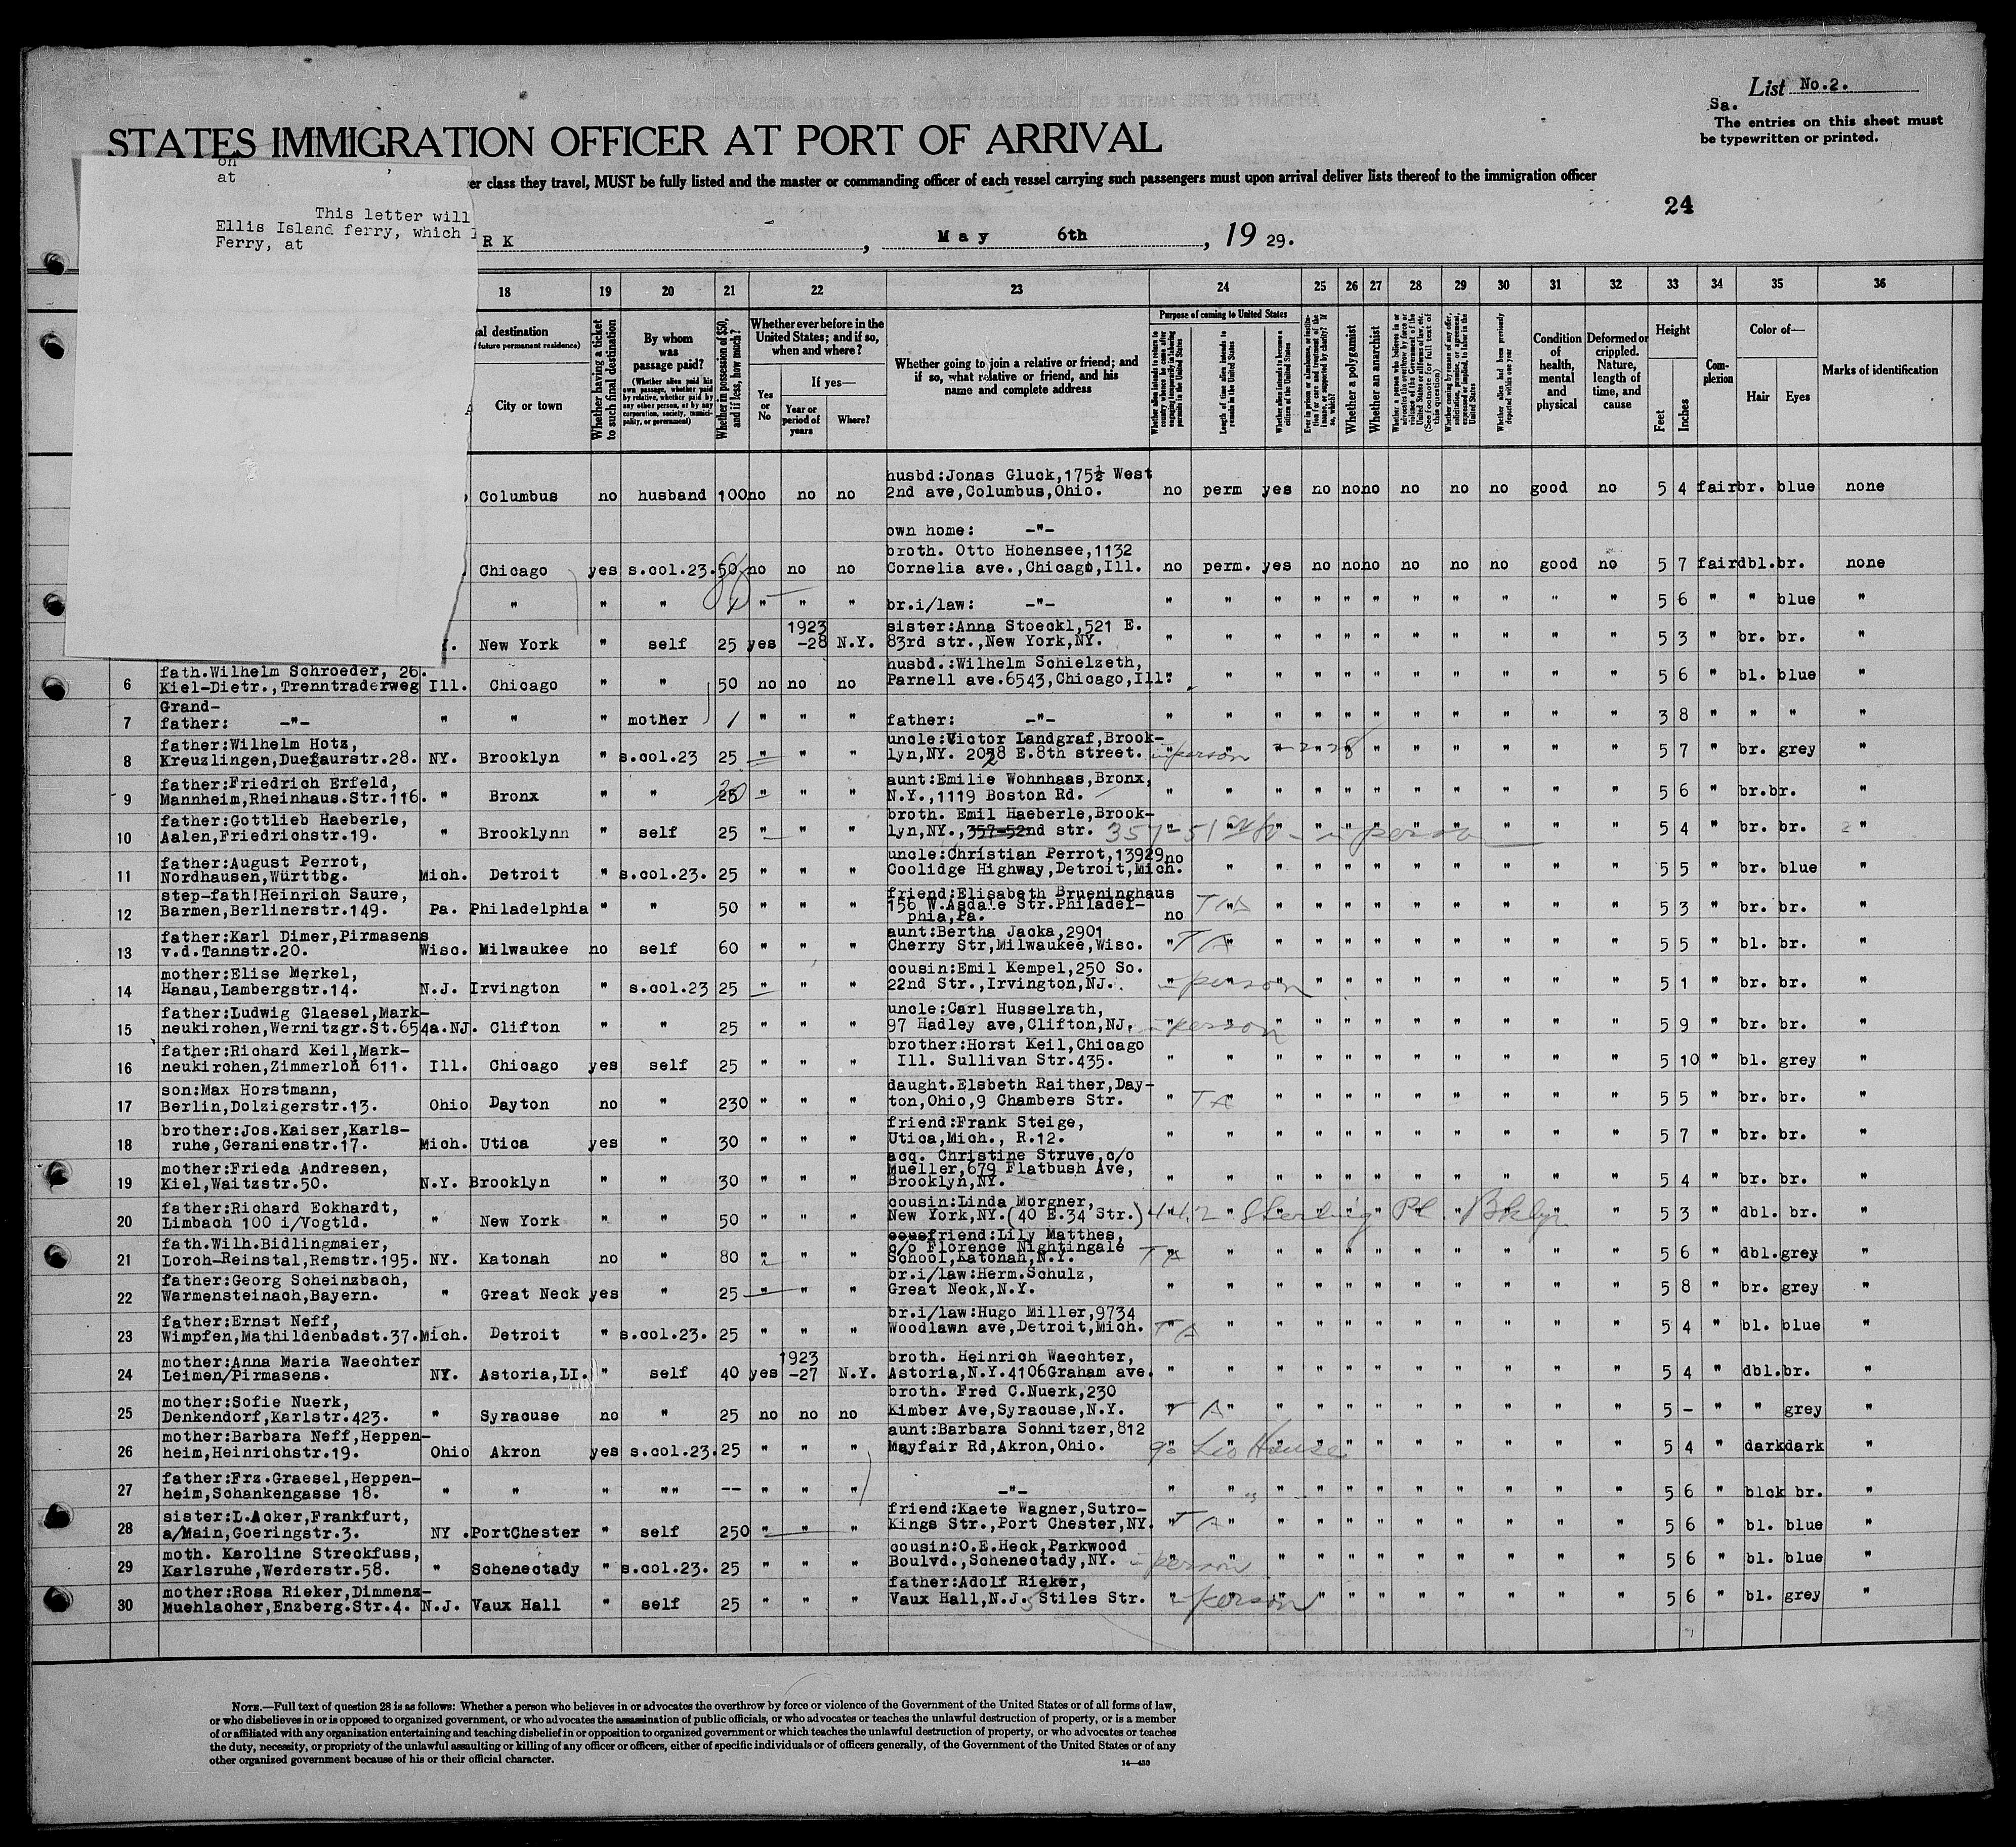 List No.2.
Sa.
The entries on this sheet must
be typewritten or printed.
STATES IMMIGRATION OFFICER AT PORT OF ARRIVAL
on
at
er class they travel, MUST be fully listed and the master or commanding officer of each vessel carrying such passengers must upon arrival deliver lists thereof to the immigration officer
24
This letter will
Ellis Island ferry, which
Ferry, at
R K , May 6th , 19 29.
18 19 20 21 22 23 24 25 26 27 28 29 30 31 32 33 34 35 36
al destination
future permanent residence)
City or town
Whether having a ticket to such final destination
By whom was passage paid?
(Whether alien paid his own passage, whether paid by relative, whether paid by any other person, or by any corporation, society, municipality, or government)
Whether in possession of $50, and if less, how much?
Whether ever before in the United States; and if so, when and where?
Yes or No
If yes—
Year or period of years
Where?
Whether going to join a relative or friend; and if so, what relative or friend, and his name and complete address
Purpose of coming to United States
Length of time alien intends to remain in the United States
Whether alien intends to become a citizen of the United States
Whether a polygamist
Whether an anarchist
Whether alien had been previously deported within one year
Condition of health, mental and physical
Deformed or crippled. Nature, length of time, and cause
Height
Feet
Inches
Complexion
Color of—
Hair
Eyes
Marks of identification
husbd:Jonas Gluck,175½ West
Columbus no husband 100 no no no 2nd ave,Columbus,Ohio. no perm yes no no no no no no good no 5 4 fair br. blue none
own home: -"-
broth. Otto Hohensee,1132
Chicago yes s.col.23. 50 no no no Cornelia ave.,Chicago,Ill. no perm. yes no no no no no no good no 5 7 fair dbl. br. none
" " " " " " br.i/law: -"- " " " " " " " " " " " 5 6 " " blue "
1923 sister:Anna Stoeckl,521 E.
New York " self 25 yes -28 N.Y. 83rd str.,New York,NY. " " " " " " " " " " " 5 3 " br. br. "
fath.Wilhelm Schroeder, 26. husbd.:Wilhelm Schielzeth,
6 Kiel-Dietr.,Trenntraderweg Ill. Chicago " " 50 no no no Parnell ave.6543,Chicago,Ill. " " " " " " " " " " " 5 6 " bl. blue "
Grand-
7 father: -"- " " " mother / " " " father: -"- " " " " " " " " " " " 3 8 " " " "
father:Wilhelm Hotz, uncle:Victor Landgraf,Brook-
8 Kreuzlingen,Duefaurstr.28. NY. Brooklyn " s.col.23 25 " " " lyn,NY. 2028 E.8th street. in person " " " " " " " " " " 5 7 " br. grey "
father:Friedrich Erfeld, aunt:Emilie Wohnhaas,Bronx,
9 Mannheim,Rheinhaus.Str.116. " Bronx " " 25 30 " " " N.Y.,1119 Boston Rd. " " " " " " " " " " " 5 6 " br. br. "
father:Gottlieb Haeberle, broth. Emil Haeberle,Brook-
10 Aalen,Friedrichstr.19. " Brooklynn " self 25 " " " lyn,NY.,357-52nd str. 357-51 - in person " " " " " " 5 4 " br. br. "
father:August Perrot, uncle:Christian Perrot,13929
11 Nordhausen,Württbg. Mich. Detroit " s.col.23. 25 " " " Coolidge Highway,Detroit,Mich. no " " " " " " " " " " 5 5 " br. blue "
step-fath!Heinrich Saure, friend:Elisabeth Brueninghaus
12 Barmen,Berlinerstr.149. Pa. Philadelphia " " 50 " " " 156 W.Asdale Str.Philadel-
phia,Pa. no TA " " " " " " " " " " 5 3 " br. br. "
father:Karl Dimer,Pirmasens aunt:Bertha Jacka,2901
13 v.d.Tannstr.20. Wisc. Milwaukee no self 60 " " " Cherry Str,Milwaukee,Wisc. " TA " " " " " " " " " " 5 5 " bl. br. "
mother:Elise Merkel, cousin:Emil Kempel,250 So.
14 Hanau,Lambergstr.14. N.J. Irvington " s.col.23 25 " " " 22nd Str.,Irvington,NJ. in person " " " " " " " " " 5 1 " br. br. "
father:Ludwig Glaesel,Mark- uncle:Carl Husselrath,
15 neukirchen,Wernitzgr.St.654a. NJ. Clifton " " 25 " " " 97 Hadley ave,Clifton,NJ. in person " " " " " " " " " 5 9 " br. br. "
father:Richard Keil,Mark- brother:Horst Keil,Chicago
16 neukirchen,Zimmerloh 611. Ill. Chicago yes self 25 " " " Ill. Sullivan Str.435. " " " " " " " " " " " 5 10 " bl. grey "
son:Max Horstmann, daught.Elsbeth Raither,Day-
17 Berlin,Dolzigerstr.13. Ohio Dayton no " 230 " " " ton,Ohio,9 Chambers Str. " TA " " " " " " " " " " 5 5 " br. br. "
brother:Jos.Kaiser,Karls- friend:Frank Steige,
18 ruhe,Geranienstr.17. Mich. Utica yes " 30 " " " Utica,Mich., R.12. " " " " " " " " " " " 5 7 " br. br. "
mother:Frieda Andresen, acq. Christine Struve,c/o
19 Kiel,Waitzstr.50. N.Y. Brooklyn " " 30 " " " Mueller,679 Flatbush Ave,
Brooklyn,NY. " " " " " " " " " " " 5 4 " br. br. "
father:Richard Eckhardt, cousin:Linda Morgner,
20 Limbach 100 i/Vogtld. " New York " " 50 " " " New York,NY.(40 E.34 Str.) 442 Sterling Pl. Bklyn " " " 5 3 " dbl. br. "
fath.Wilh.Bidlingmaier, cousfriend:Lily Matthes,
21 Lorch-Reinstal,Remstr.195. NY. Katonah no " 80 " " " c/o Florence Nightingale
School,Katonah,N.Y. TA " " " " " " " " " " " 5 6 " dbl. grey "
father:Georg Scheinzbach, br.i/law:Herm.Schulz,
22 Warmensteinach,Bayern. " Great Neck yes " 25 " " " Great Neck,N.Y. " " " " " " " " " " " 5 8 " br. grey "
father:Ernst Neff, br.i/law:Hugo Miller,9734
23 Wimpfen,Mathildenbadst.37. Mich. Detroit " s.col.23. 25 " " " Woodlawn ave,Detroit,Mich. TA " " " " " " " " " " 5 4 " bl. blue "
mother:Anna Maria Waechter 1923 broth. Heinrich Waechter,
24 Leimen/Pirmasens. NY. Astoria,LI. " self 40 yes -27 N.Y. Astoria,N.Y.4106Graham ave. " " " " " " " " " " " 5 4 " dbl. br. "
mother:Sofie Nuerk, broth. Fred C.Nuerk,230
25 Denkendorf,Karlstr.423. " Syracuse no " 25 no no no Kimber Ave,Syracuse,N.Y. TA " " " " " " " " " " 5 - " " grey "
mother:Barbara Neff,Heppen- aunt:Barbara Schnitzer,812
26 heim,Heinrichstr.19. Ohio Akron yes s.col.23. 25 " " " Mayfair Rd,Akron,Ohio. Leo House " " " " " " " " 5 4 " dark dark "
father:Frz.Graesel,Heppen-
27 heim,Schankengasse 18. " " " "" -- " " " -"- " " " " " " " " " " " 5 6 " blck br. "
sister:L.Acker,Frankfurt, friend:Kaete Wagner,Sutro-
28 a/Main,Goeringstr.3. NY. PortChester " self 250 " " " Kings Str.,Port Chester,NY. TA " " " " " " " " " " 5 6 " bl. blue "
moth. Karoline Streckfuss, cousin:O.E.Heck,Parkwood
29 Karlsruhe,Werderstr.58. " Schenectady " s.col.23. 25 " " " Boulvd.,Schenectady,NY. in person " " " " " " " " " 5 6 " bl. blue "
mother:Rosa Rieker,Dimmenz- father:Adolf Rieker,
30 Muehlacher,Enzberg.Str.4. N.J. Vaux Hall " self 25 " " " Vaux Hall,N.J. 5 Stiles Str. in person " " " " " " " " 5 6 " bl. grey "
NOTE.—Full text of question 28 is as follows: Whether a person who believes in or advocates the overthrow by force or violence of the Government of the United States or of all forms of law,
or who disbelieves in or is opposed to organized government, or who advocates the assassination of public officials, or who advocates or teaches the unlawful destruction of property, or is a member
of or affiliated with any organization entertaining and teaching disbelief in or opposition to organized government or which teaches the unlawful destruction of property, or who advocates or teaches
the duty, necessity, or propriety of the unlawful assaulting or killing of any officer or officers, either of specific individuals or of officers generally, of the Government of the United States or of any
other organized government because of his or their official character.
14—430